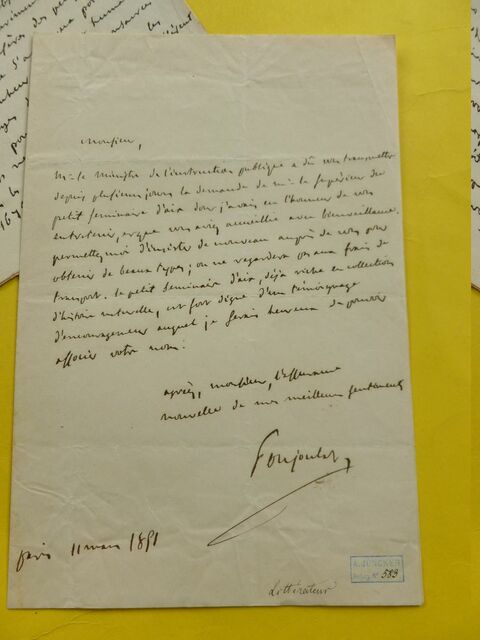 Monsieur,
Mr. le Ministre de l'instruction publique a dû vous transmettre
depuis plusieurs jours la demande de Mr. le supérieur du
petit séminaire d'aix dont j'avais eu l'honneur de vous
entretenir, et que vous avez accueillie avec bienveillance.
permettez moi d'insister de nouveau auprès de vous pour
obtenir de beaux types; on ne regardera pas aux frais de
transport. le petit séminaire d'aix, déjà riche en collections
d'histoire naturelle, est fort digne d'un témoignage
d'encouragement auquel je serais heureux de pouvoir
associer votre nom.
agréez, monsieur, l'assurance
nouvelle de mes meilleurs sentiments
Poujoulat
paris 11 mars 1851
A. JUNCKER
N° 583
Littérateur